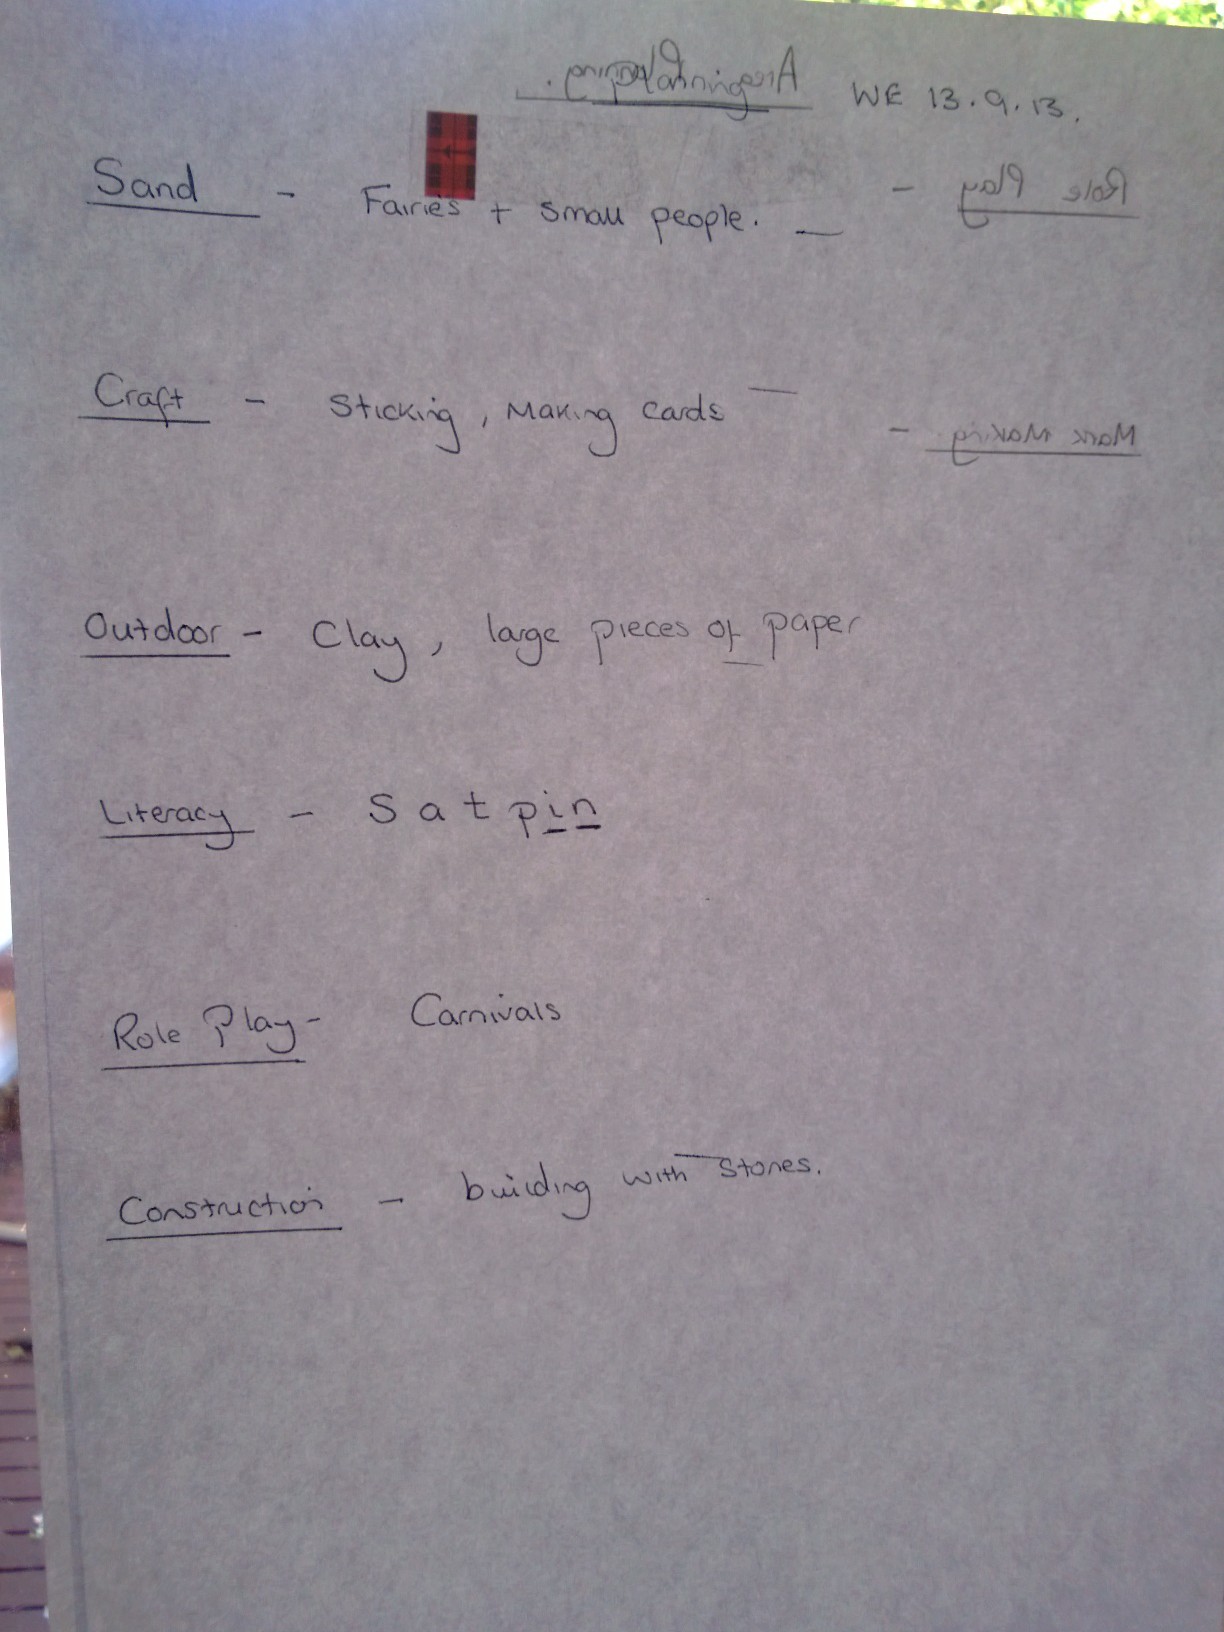 WE 13.9.13.
Sand - Fairies + small people.
Role Play -
Craft - Sticking, Making cards
Mark Making -
Outdoor - Clay, large pieces of paper
Literacy - s a t p i n
Role Play - Carnivals
Construction - building with stones.